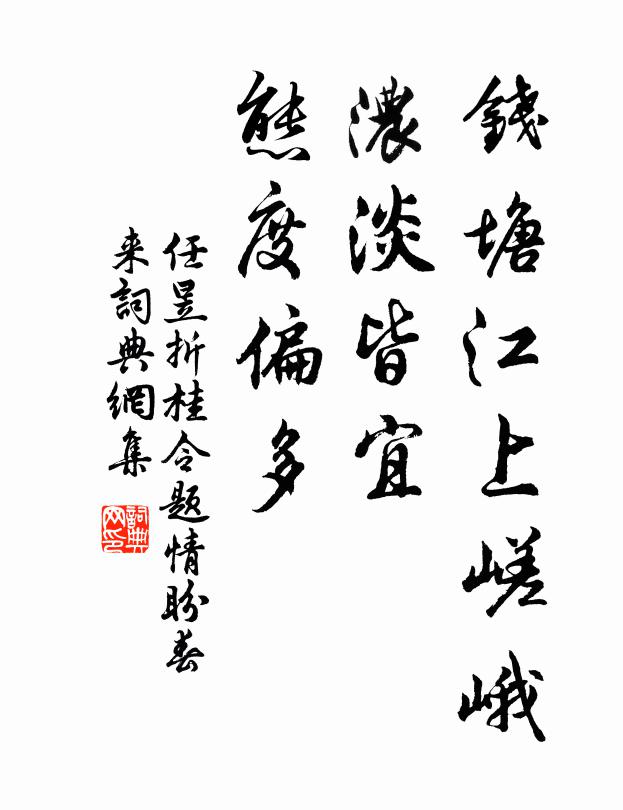 錢塘江上嵯峨
濃淡皆宜
態度偏多
任昱折桂令题情盼春
来詞典網集
詞典
网印